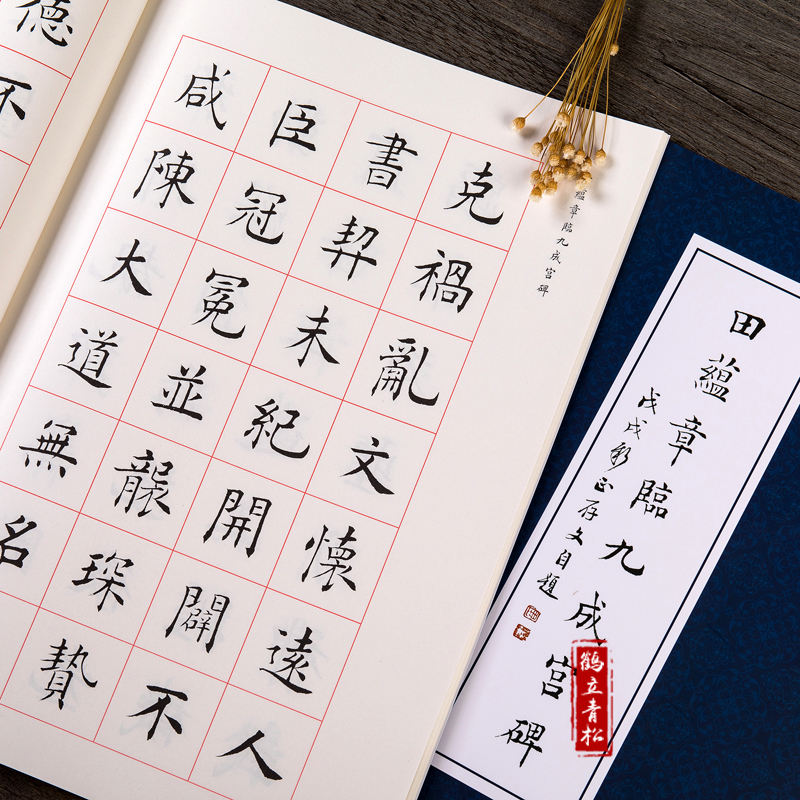 克禍亂文懷遠人
書契未紀開闢不
臣冠冕並襲琛贄
咸陳大道無名
德不
蘊章臨九成宮碑
田蘊章臨九成宮碑
戊戌新正存文自題
鹤立青松